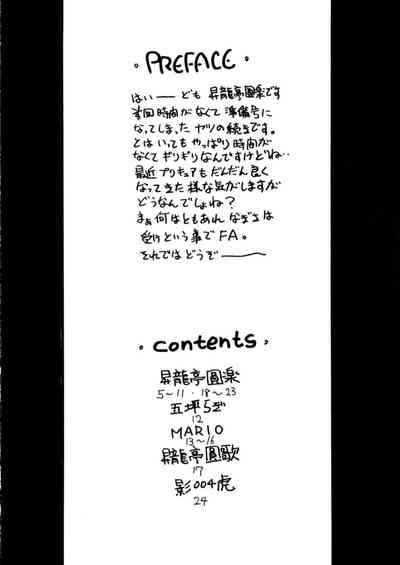 ・PREFACE・
はいー ども 昇龍亭圓楽です
前回時間がなくて準備号に
なってしまったヤツの続きです。
とはいってもやっぱり時間が
なくてギリギリなんですけどね‥
最近プリキュアもだんだん良く
なってきた様な気がしますが
どうなんでしょね?
まぁ何はともあれなぎさは
受けという事でFA。
それではどうぞー
・contents・
昇龍亭圓楽
5〜11・18〜23
五坪らぎ
12
MARIO
13〜16
昇龍亭圓歌
17
影004虎
24